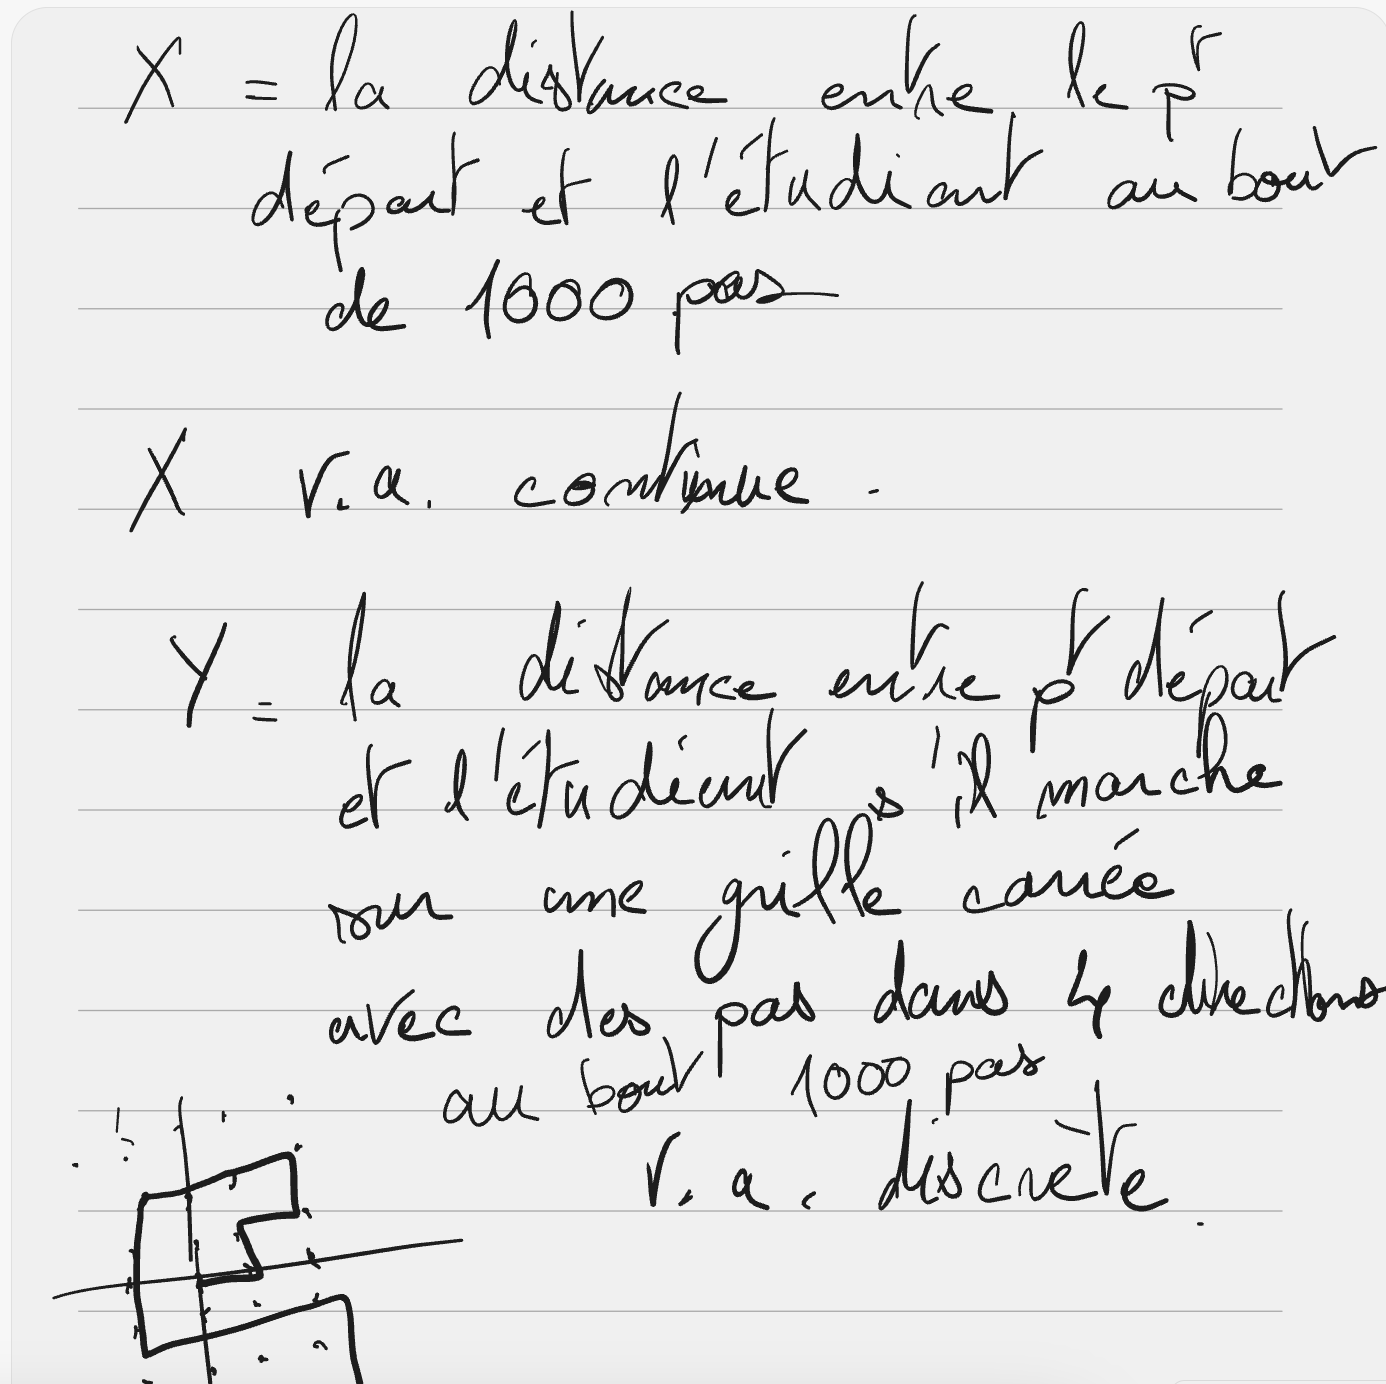 X = la distance entre le pt
départ et l'étudiant au bout
de 1000 pas
X v.a. continue.
Y = la distance entre pt départ
et l'étudiant s'il marche
sur une grille carrée
avec des pas dans 4 directions
au bout 1000 pas
v.a. discrète.